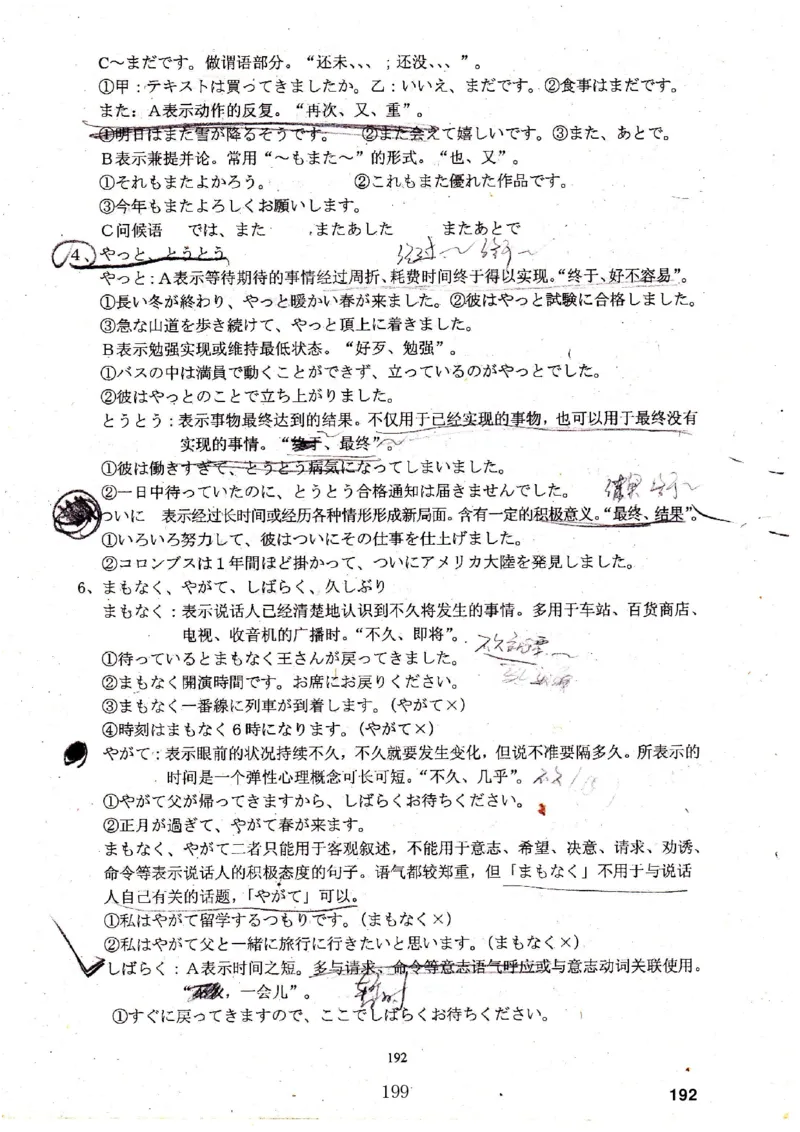 C～まだです。做谓语部分。“还未、、、；还没、、、”。
①甲：テキストは買ってきましたか。乙：いいえ、まだです。②食事はまだです。
また：A表示动作的反复。“再次、又、重”。
①明日はまた雪が降るそうです。 ②また会えて嬉しいです。③また、あとで。
B表示兼提并论。常用“～もまた～”的形式。“也、又”。
①それもまたよかろう。 ②これもまた優れた作品です。
③今年もまたよろしくお願いします。
C问候语 では、また またあした またあとで
4、やっと、とうとう
やっと：A表示等待期待的事情经过周折、耗费时间终于得以实现。“终于、好不容易”。
①長い冬が終わり、やっと暖かい春が来ました。②彼はやっと試験に合格しました。
③急な山道を歩き続けて、やっと頂上に着きました。
B表示勉强实现或维持最低状态。“好歹、勉强”。
①バスの中は満員で動くことができず、立っているのがやっとでした。
②彼はやっとのことで立ち上がりました。
とうとう：表示事物最终达到的结果。不仅用于已经实现的事物，也可以用于最终没有
实现的事情。“终于、最终”。
①彼は働きすぎて、とうとう病気になってしまいました。
②一日中待っていたのに、とうとう合格通知は届きませんでした。
ついに 表示经过长时间或经历各种情形形成新局面。含有一定的积极意义。“最终、结果”。
①いろいろ努力して、彼はついにその仕事を仕上げました。
②コロンブスは１年間ほど掛かって、ついにアメリカ大陸を発見しました。
6、まもなく、やがて、しばらく、久しぶり
まもなく：表示说话人已经清楚地认识到不久将发生的事情。多用于车站、百货商店、
电视、收音机的广播时。“不久、即将”。
①待っているとまもなく王さんが戻ってきました。
②まもなく開演時間です。お席にお戻りください。
③まもなく一番線に列車が到着します。(やがて×)
④時刻はまもなく６時になります。(やがて×)
やがて：表示眼前的状况持续不久，不久就要发生变化，但说不准要隔多久。所表示的
时间是一个弹性心理概念可长可短。“不久、几乎”。
①やがて父が帰ってきますから、しばらくお待ちください。
②正月が過ぎて、やがて春が来ます。
まもなく、やがて二者只能用于客观叙述，不能用于意志、希望、决意、请求、劝诱、
命令等表示说话人的积极态度的句子。语气都较郑重，但「まもなく」不用于与说话
人自己有关的话题，「やがて」可以。
①私はやがて留学するつもりです。(まもなく×)
②私はやがて父と一緒に旅行に行きたいと思います。(まもなく×)
しばらく：A表示时间之短。多与请求、命令等意志语气呼应或与意志动词关联使用。
，一会儿”。 暂时
①すぐに戻ってきますので、ここでしばらくお待ちください。
192
199
192